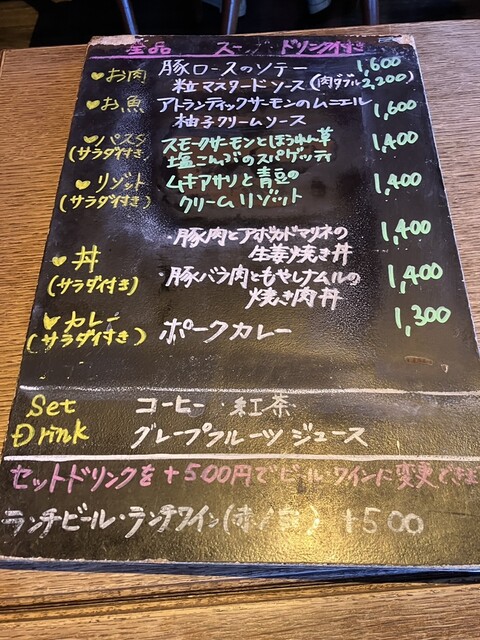 全品 スープ ドリンク付き
♥お肉 豚ロースのソテー 1,600
粒マスタードソース (肉ダブル 2,200)
♥お魚 アトランティックサーモンのムニエル 1,600
柚子クリームソース
♥パスタ スモークサーモンとほうれん草 1,400
(サラダ付き) 塩こんぶのスパゲッティ
♥リゾット ムキアサリと青豆の 1,400
(サラダ付き) クリームリゾット
・豚肉とアボカドマリネの 1,400
♥丼 生姜焼き丼
(サラダ付き) ・豚バラ肉ともやしナムルの 1,400
焼き肉丼
♥カレー ポークカレー 1,300
(サラダ付き)
Set コーヒー ・紅茶
Drink グレープフルーツジュース
セットドリンクを+500円でビール・ワインに変更でき
ランチビール・ランチワイン(赤/白) +500